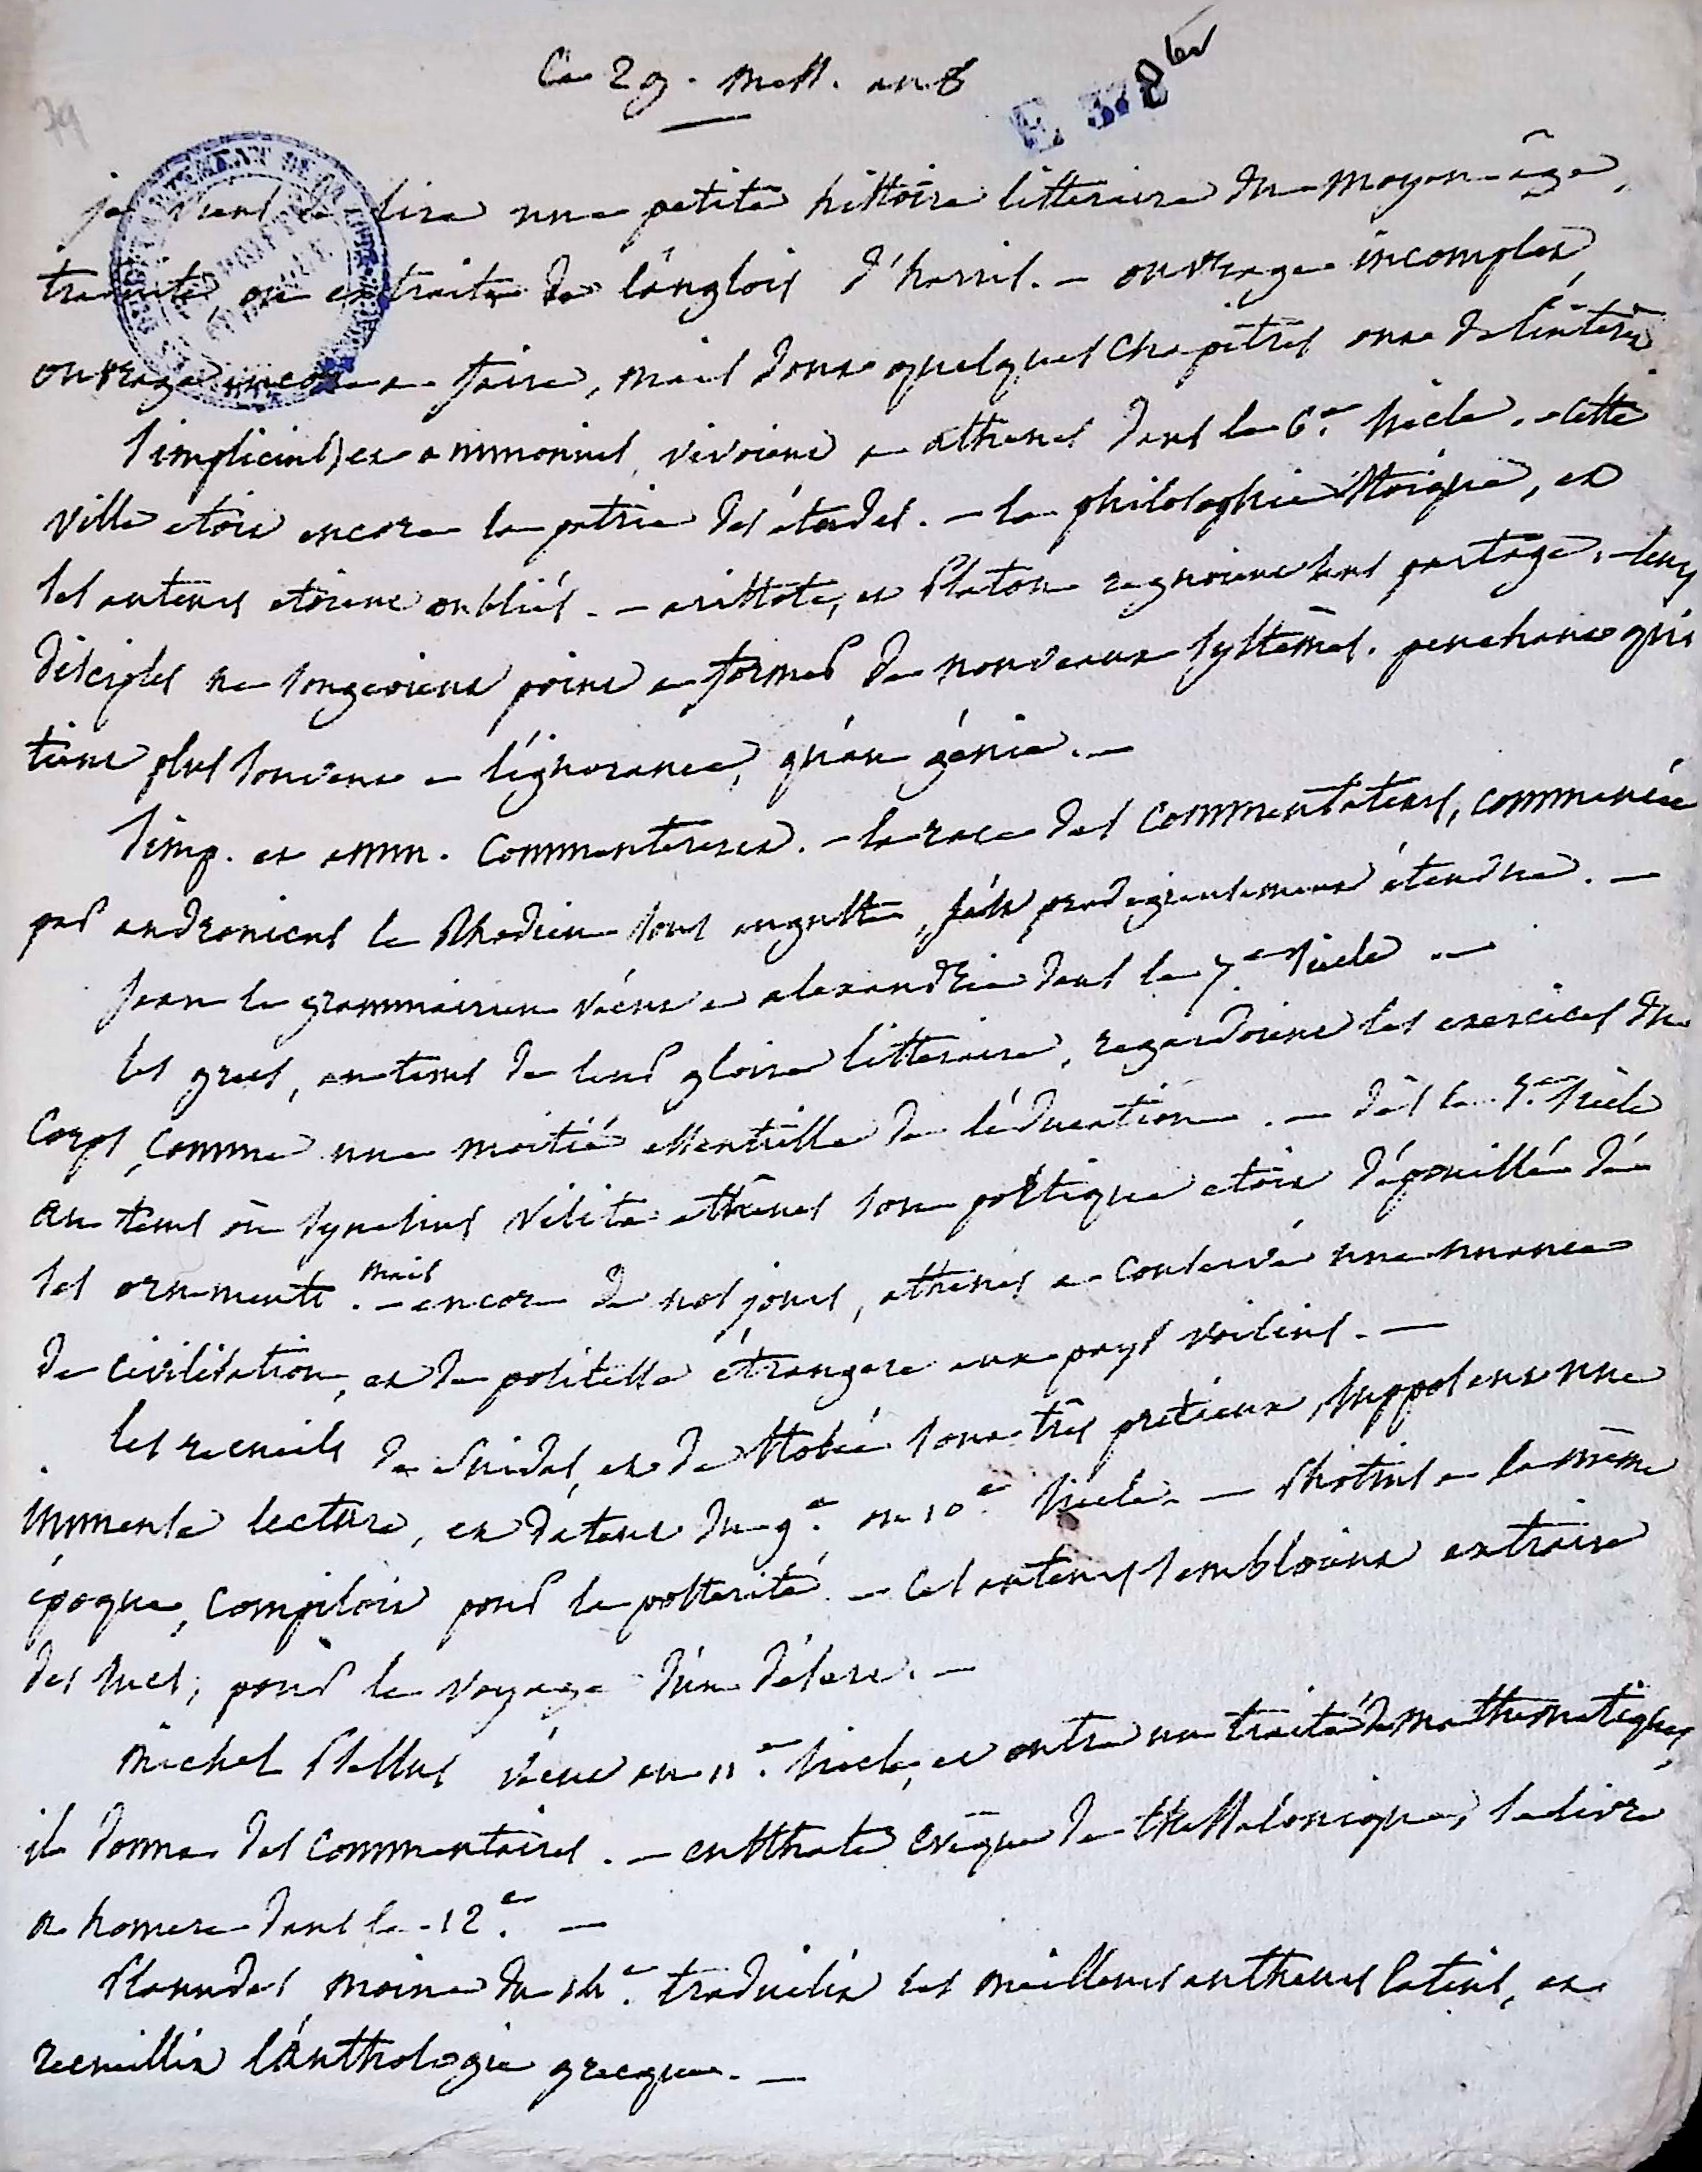 Ce 29. mess. an 8
E 378 bis
79
je viens de lire une petite histoire litteraire du moyen-âge,
traduite ou extraite de l'anglois d'harris. - ouvrage incomplet,
ouvrage encore a faire, mais dont quelques chapitres ont de l'intérêt.
Simplicius, et ammonius, vivoient a athenes dans le 6.e siècle. - cette
ville etoit encore la patrie des études. - la philosophie stoïque, et
ses auteurs etoient oubliés. - aristote, et Platon regnoient sans partage. - leurs
disciples ne songeoient point a former de nouveaux systèmes. penchant qui
tient plus souvent a l'ignorance, qu'au génie. -
Simp. et amm. commenterent. - la race des commentateurs, commencée
par andronicus le Rhodien sous auguste, s'est prodigieusement étendue. -
jean le grammairien vécut a alexandrie dans le 7.e siècle. -
les grecs, au tems de leur gloire litteraire, regardoient les exercices du
corps, comme une moitié essentielle de l'éducation. - dès le 5.e siècle
au tems où synesius visita athènes son portique etoit dépouillé de
ses ornements. - mais encore de nos jours, athenes a conservé une nuance
de civilisation, et de politesse étrangere aux pays voisins. -
les recueils de Suidas, et de Stobée sont très pretieux, supposent une
immense lecture, et datent du 9.e ou 10.e siècle. - Photius a la même
époque, compiloit pour la postérité. - ces auteurs sembloient extraire
des sucs, pour le voyage d'un désert. -
Michel Psellus vécut au 11.e siècle, et outre un traité de mathematiques,
il donna des commentaires. - eusthate evêque de thessalonique, se livre
a homere dans le 12.e -
Planudes moine du 14.e traduisit les meilleurs autheurs latins, et
recueillit l'anthologie grecque. -